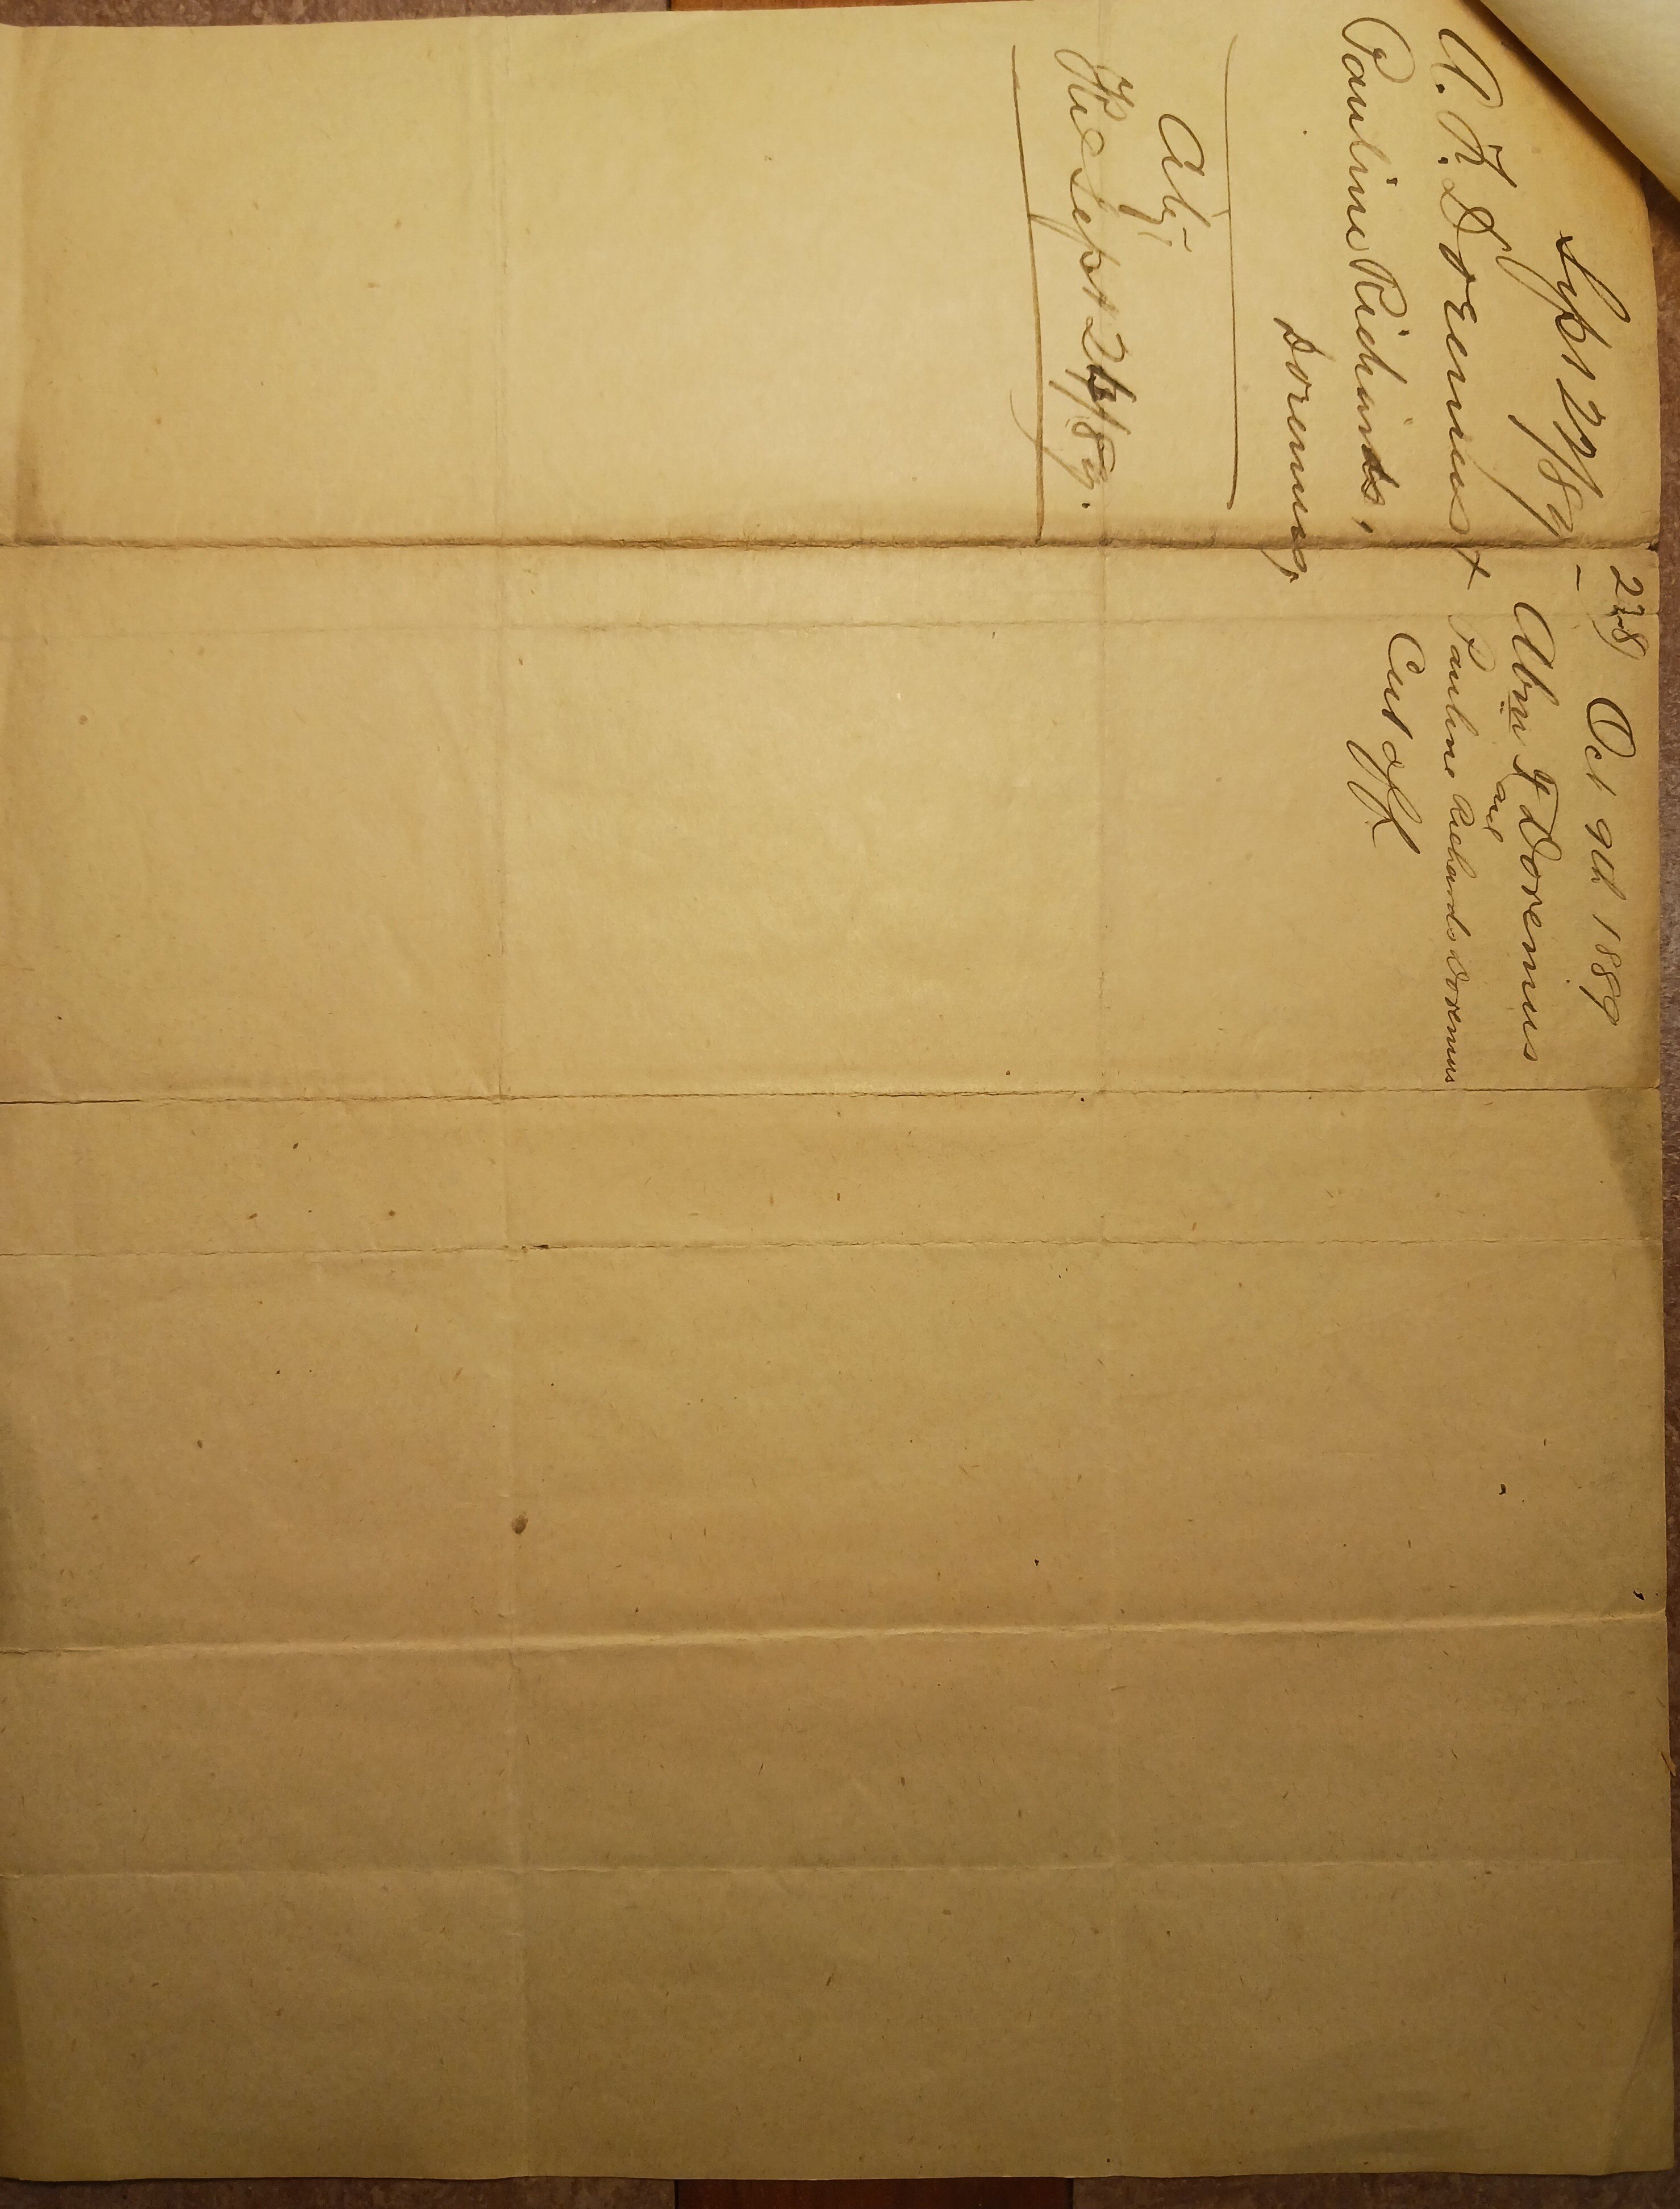 Sept 27/89 -
A. F. Doremus &
Pauline Richards,
Doremus,
Sept 24/89.
228 Oct 9th 1889
Abm F Doremus
and
Pauline Richards Doremus
Cut off